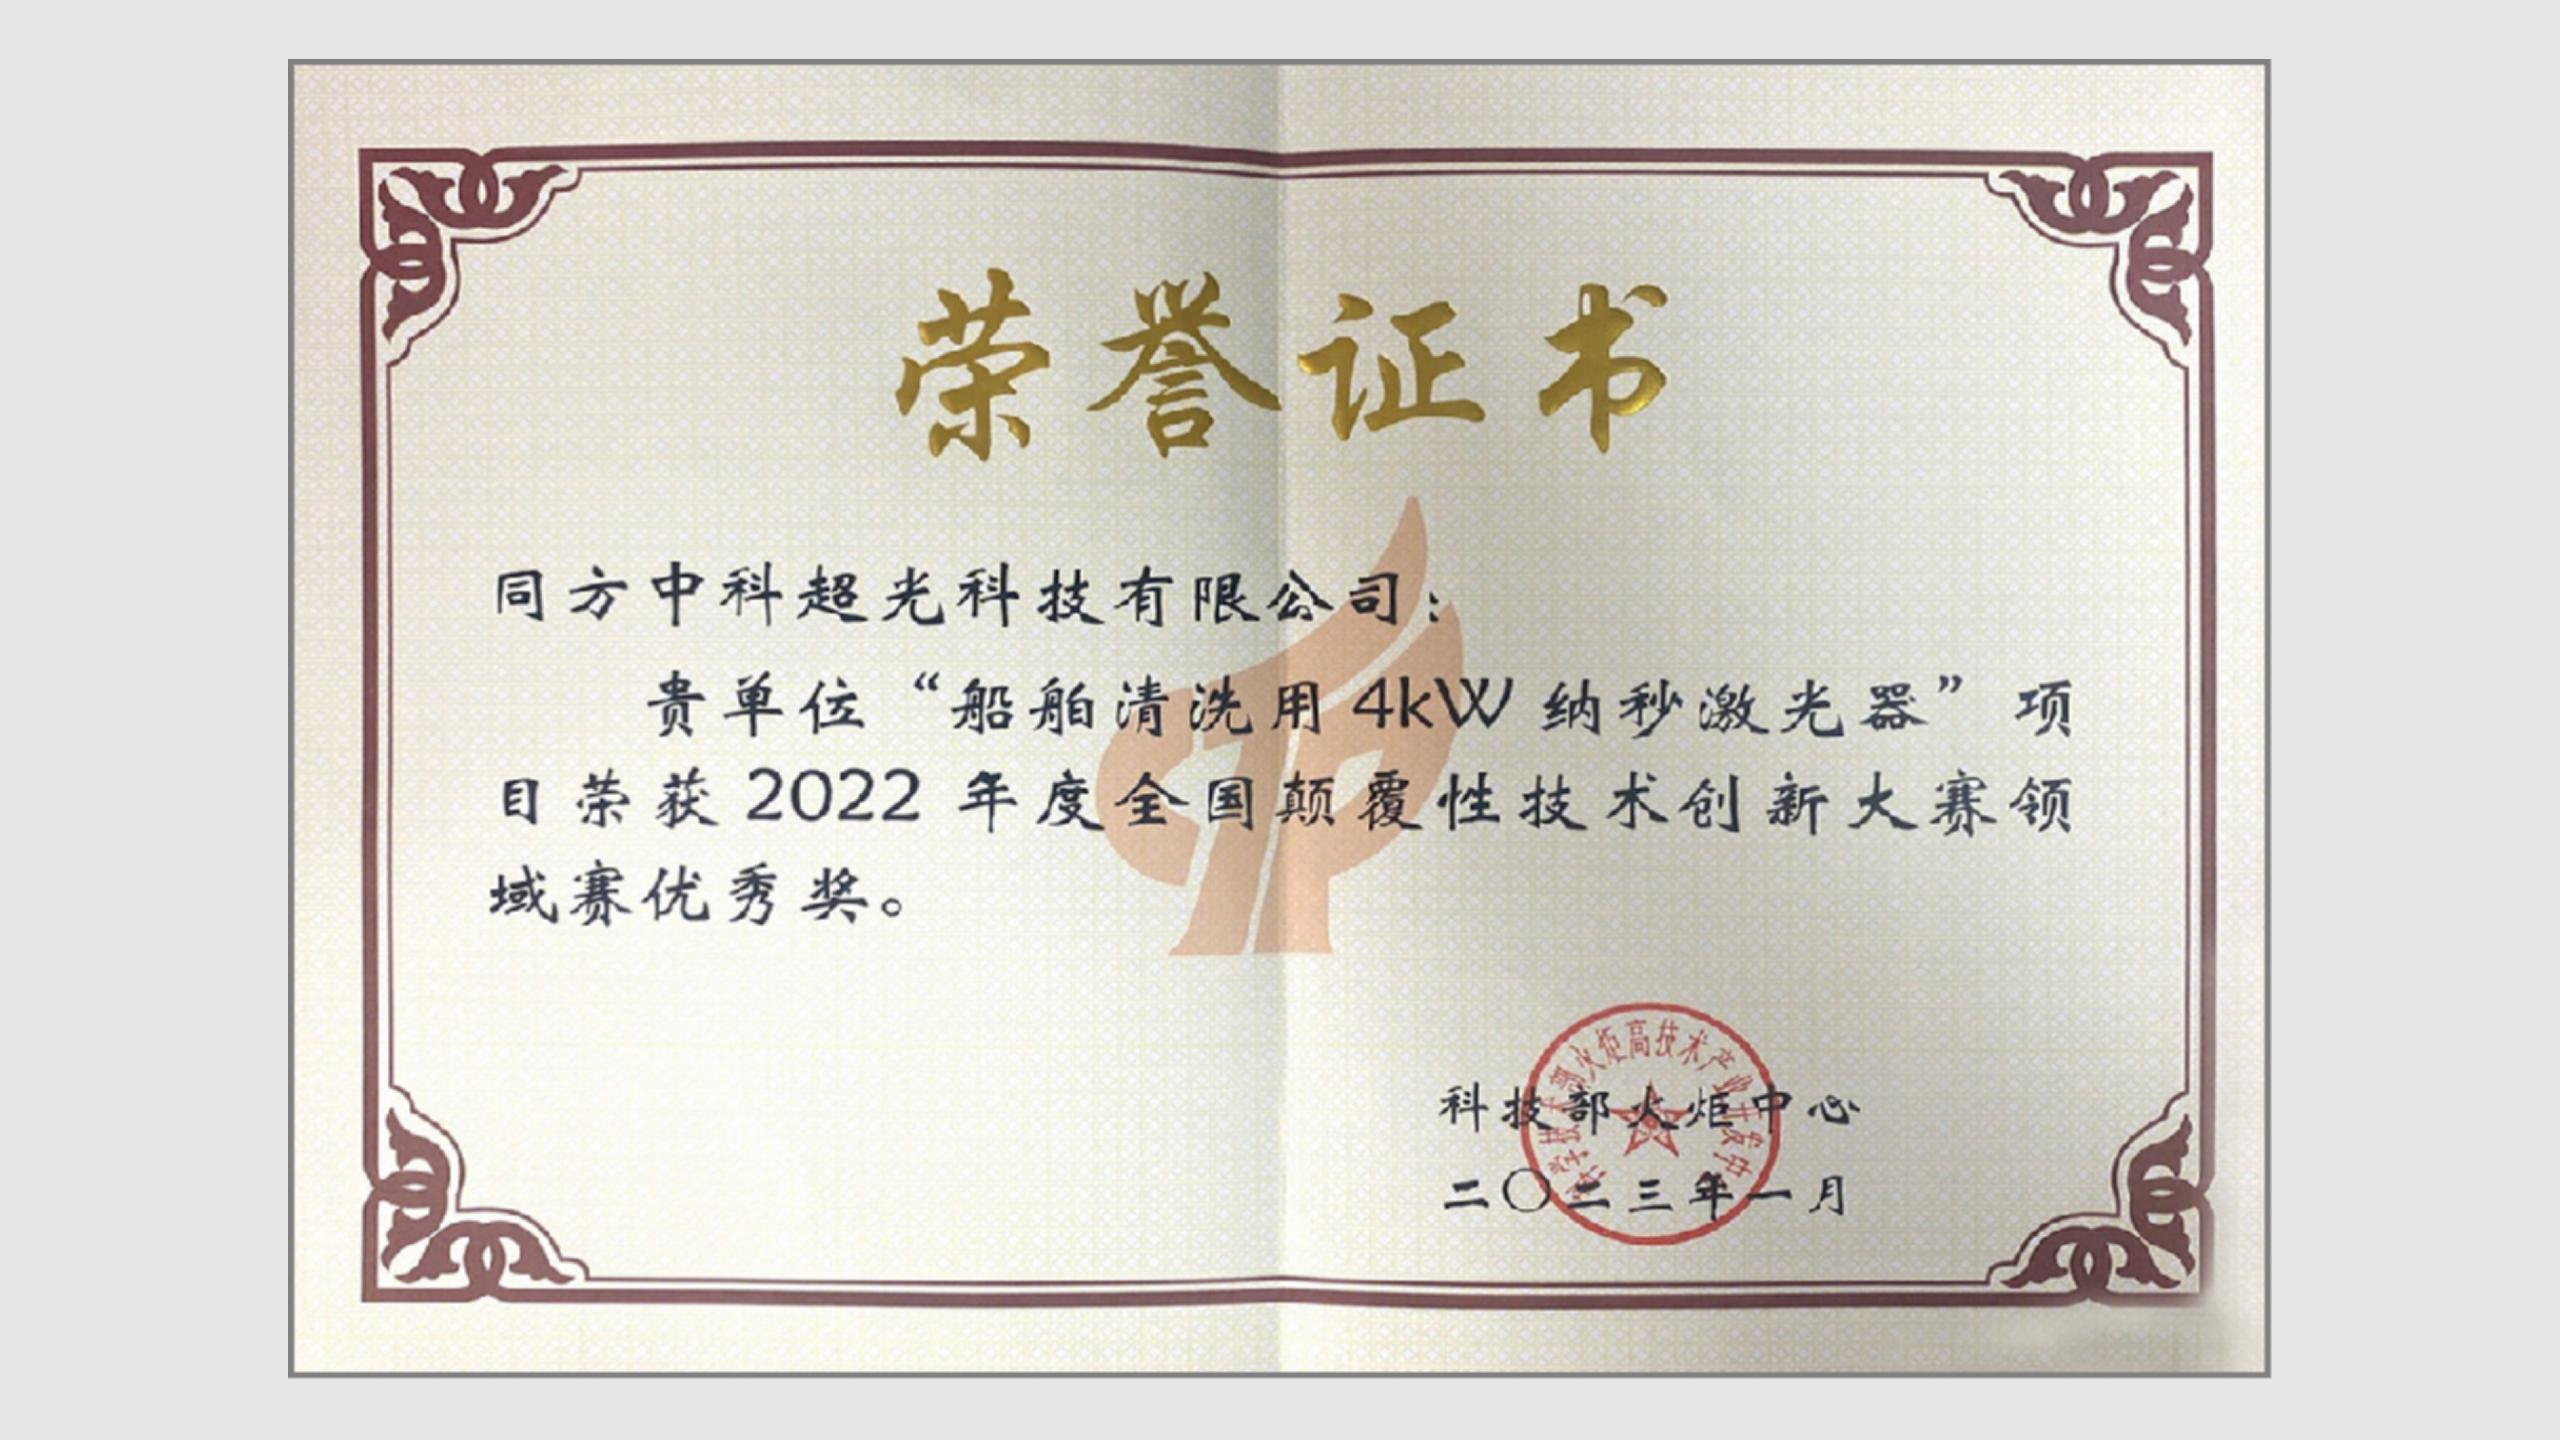 荣誉证书
同方中科超光科技有限公司：
贵单位“船舶清洗用4kW纳秒激光器”项
目荣获2022年度全国颠覆性技术创新大赛领
域赛优秀奖。
科技部火炬中心
二〇二三年一月
学技术部火炬高技术产业开发中